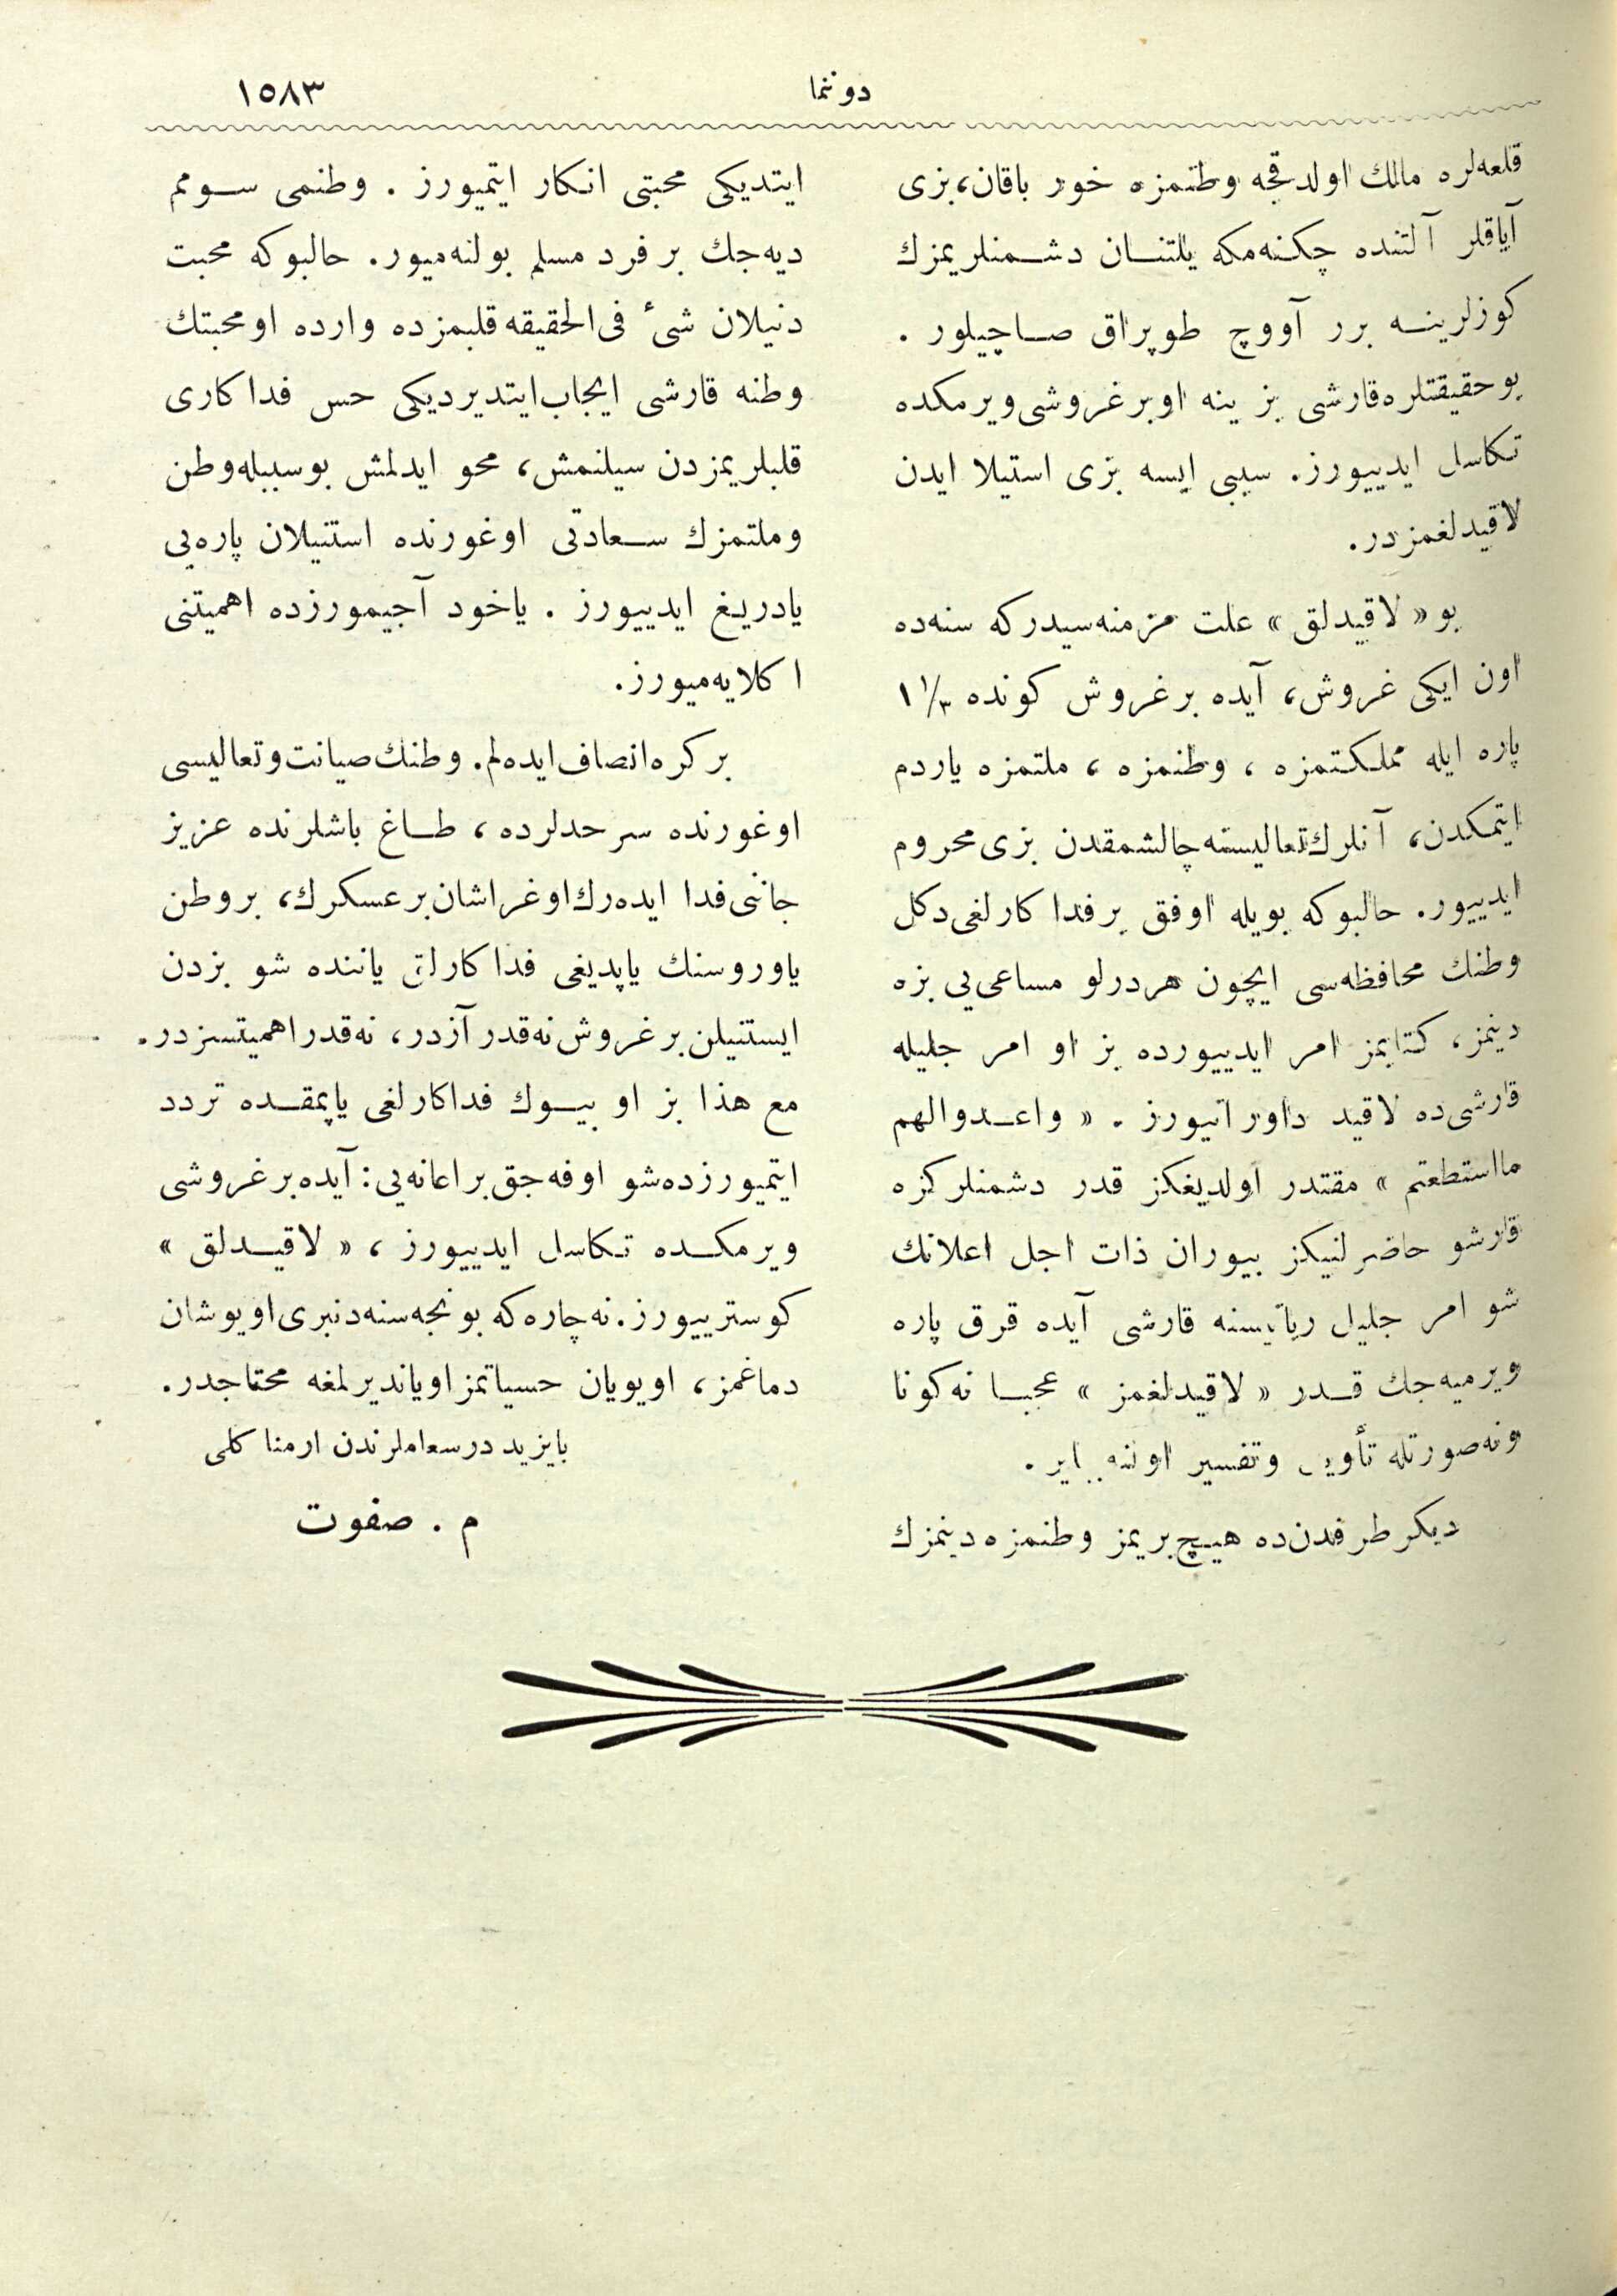 دوننما
١٥٨٣
قلعه‌لره مالك اولدقجه وطنمزه خور باقان، بزى
آياقلر آلتنده چكنه‌مكه يلتنان دشمنلريمزك
كوزلرينه برر آووچ طوپراق صاچيلور .
بو حقيقتلره قارشى بز ينه او بر غروشى ويرمكده
تكاسل ايدييورز. سببى ايسه بزى استيلا ايدن
لاقيدلغمزدر.
بو « لاقيدلق » علت مزمنه‌سيدركه سنه‌ده
اون ايكى غروش، آيده بر غروش كونده ١ ١/٣
پاره ايله مملكتمزه ، وطنمزه ، ملتمزه ياردم
ايتمكدن، آنلرك تعاليسنه چالشمقدن بزى محروم
ايدييور. حالبوكه بويله اوفق بر فدا كارلغى دكل
وطنك محافظه‌سى ايچون هر درلو مساعى‌يى بزه
دينمز، كتابمز امر ايدييورده بز او امر جليله
قارشى‌ده لاقيد داورانيورز . « واعدوالهم
مااستطعتم » مقتدر اولديغكز قدر دشمنلركزه
قارشو حاضرلنيكز بيوران ذات اجل اعلانك
شو امر جليل ربانيسنه قارشى آيده قرق پاره
ويرميه‌جك قدر « لاقيدلغمز » عجبا نه كونا
ونه صورتله تأويل وتفسير اولنه بيلير .
ديكر طرفدن ده هيچ بريمز وطنمزه دينمزك
ايتديكى محبتى انكار ايتميورز . وطنمى سومم
ديه‌جك بر فرد مسلم بولنه‌ميور. حالبوكه محبت
دنيلان شىء فى‌الحقيقه قلبمزده وارده او محبتك
وطنه قارشى ايجاب ايتديرديكى حس فدا كارى
قلبلريمزدن سيلنمش، محو ايدلمش بو سببله وطن
وملتمزك سعادتى اوغورنده استنيلان پاره‌يى
يا دريغ ايدييورز . ياخود آجيمورزده اهميتنى
اكلايه‌ميورز.
بر كره انصاف ايده‌لم. وطنك صيانت و تعاليسى
اوغورنده سرحدلرده ، طاغ باشلرنده عزيز
جاننى فدا ايده‌رك اوغراشان بر عسكرك، بر وطن
ياوروسنك ياپديغى فدا كارلق ياننده شو بزدن
ايستنيلن بر غروش نه‌قدر آزدر، نه‌قدر اهميتسزدر.
مع هذا بز او بيوك فداكارلغى ياپمقده تردد
ايتميورزده شو اوفه‌جق بر اعانه‌يى: آيده بر غروشى
ويرمكده تكاسل ايدييورز ، « لاقيدلق »
كوسترييورز. نه چاره كه بونجه سنه‌دنبرى اويوشان
دماغمز، اويويان حسياتمز اوياندير لمغه محتاجدر.
بايزيد درسعاملرندن ارمنا كلى
م . صفوت